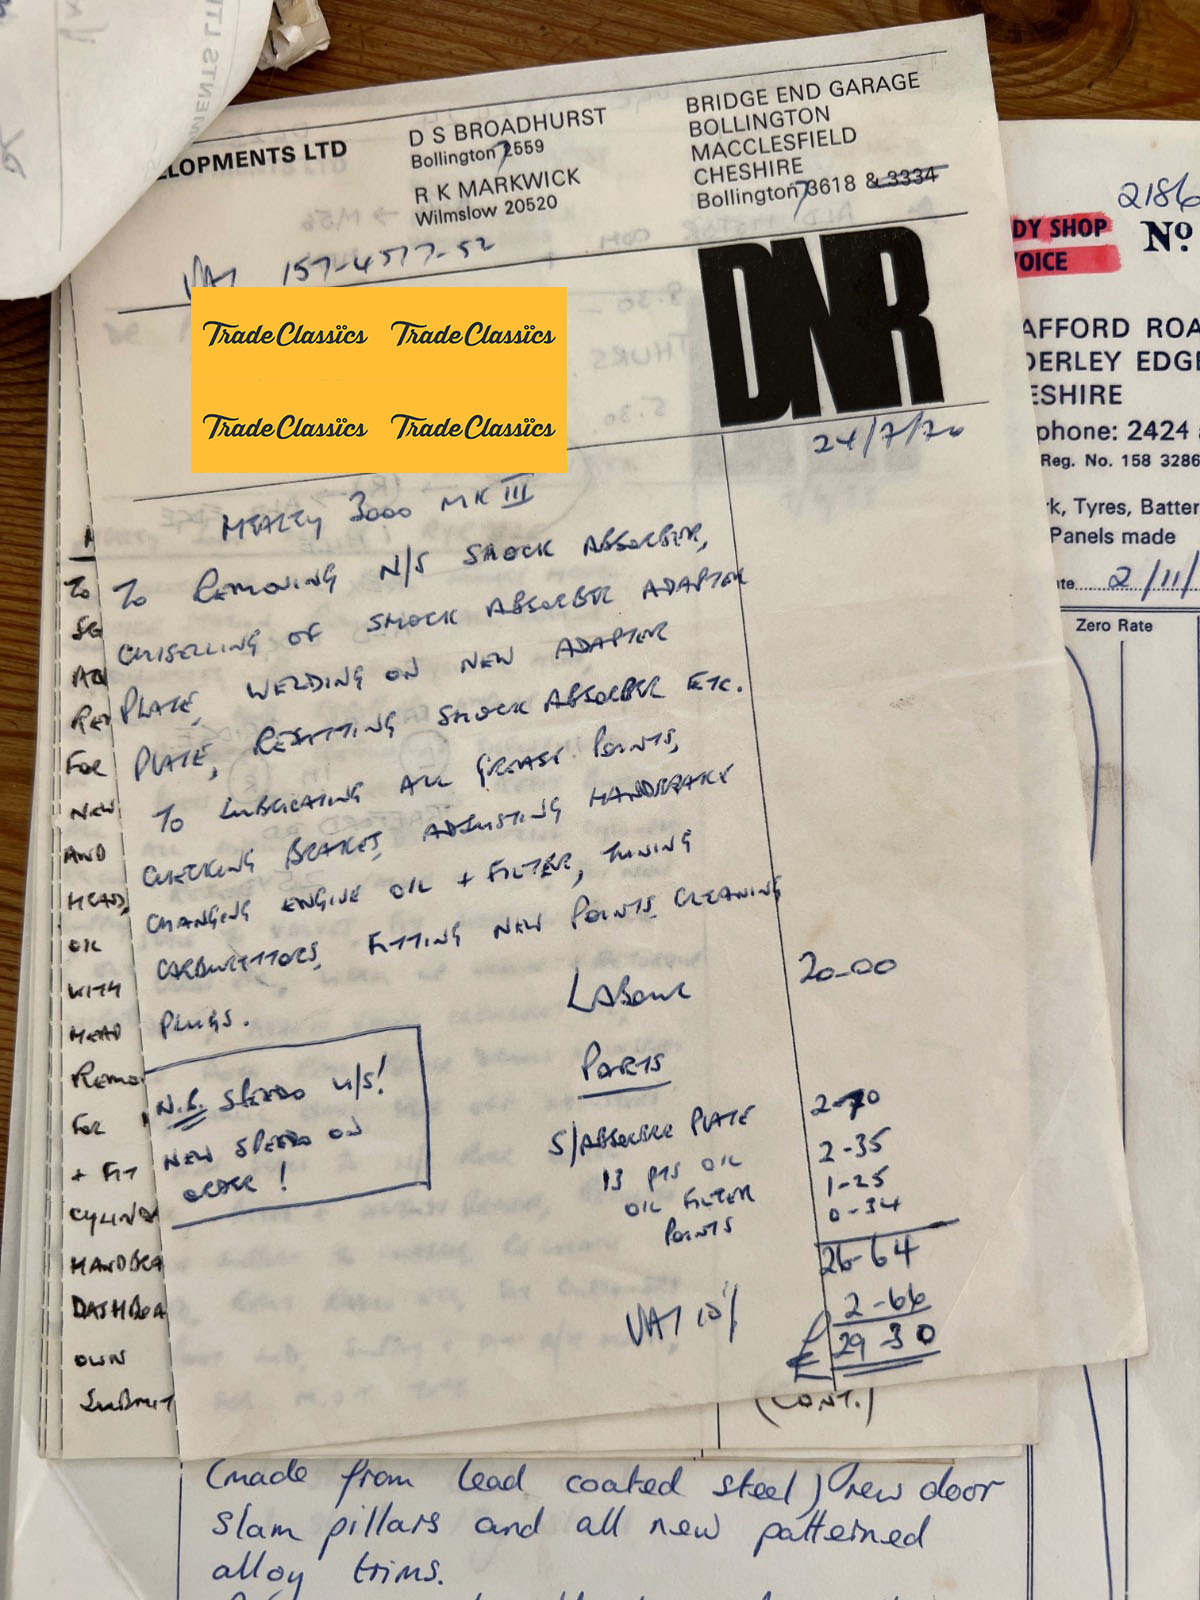 ELOPMENTS LTD
D S BROADHURST
Bollington 72559
R K MARKWICK
Wilmslow 20520
BRIDGE END GARAGE
BOLLINGTON
MACCLESFIELD
CHESHIRE
Bollington 73618 & 3334
VAT 157-4577-52
DNR
TradeClassics TradeClassics
TradeClassics TradeClassics
24/7/76
HEALEY 3000 MK III
TO REMOVING N/S SHOCK ABSORBER,
CHISELLING OF SHOCK ABSORBER ADAPTER
PLATE, WELDING ON NEW ADAPTER
PLATE, REFITTING SHOCK ABSORBER ETC.
TO LUBRICATING ALL GREASE POINTS,
CHECKING BRAKES, ADJUSTING HANDBRAKE
CHANGING ENGINE OIL + FILTER, TUNING
CARBURETTORS, FITTING NEW POINTS, CLEANING
PLUGS.
LABOUR 20-00
PARTS
S/ABSORBER PLATE 2-70
13 PTS OIL 2-35
OIL FILTER 1-25
POINTS 0-34
26-64
VAT 10% 2-66
£ 29-30
N.B. SPEEDO U/S!
NEW SPEEDO ON
ORDER!
TO
FOR
NEW
AND
HEAD,
OIL
WITH
HEAD
REMO
FOR
+ FIT
CYLINDE
HANDBRA
DASHBOA
OWN
SUBMIT
(CONT.)
(made from lead coated steel) new door
slam pillars and all new patterned
alloy trims.
2186
DY SHOP
VOICE
No
AFFORD ROA
DERLEY EDGE
ESHIRE
phone: 2424
Reg. No. 158 3286
rk, Tyres, Batter
Panels made
ate.... 2/11/
Zero Rate